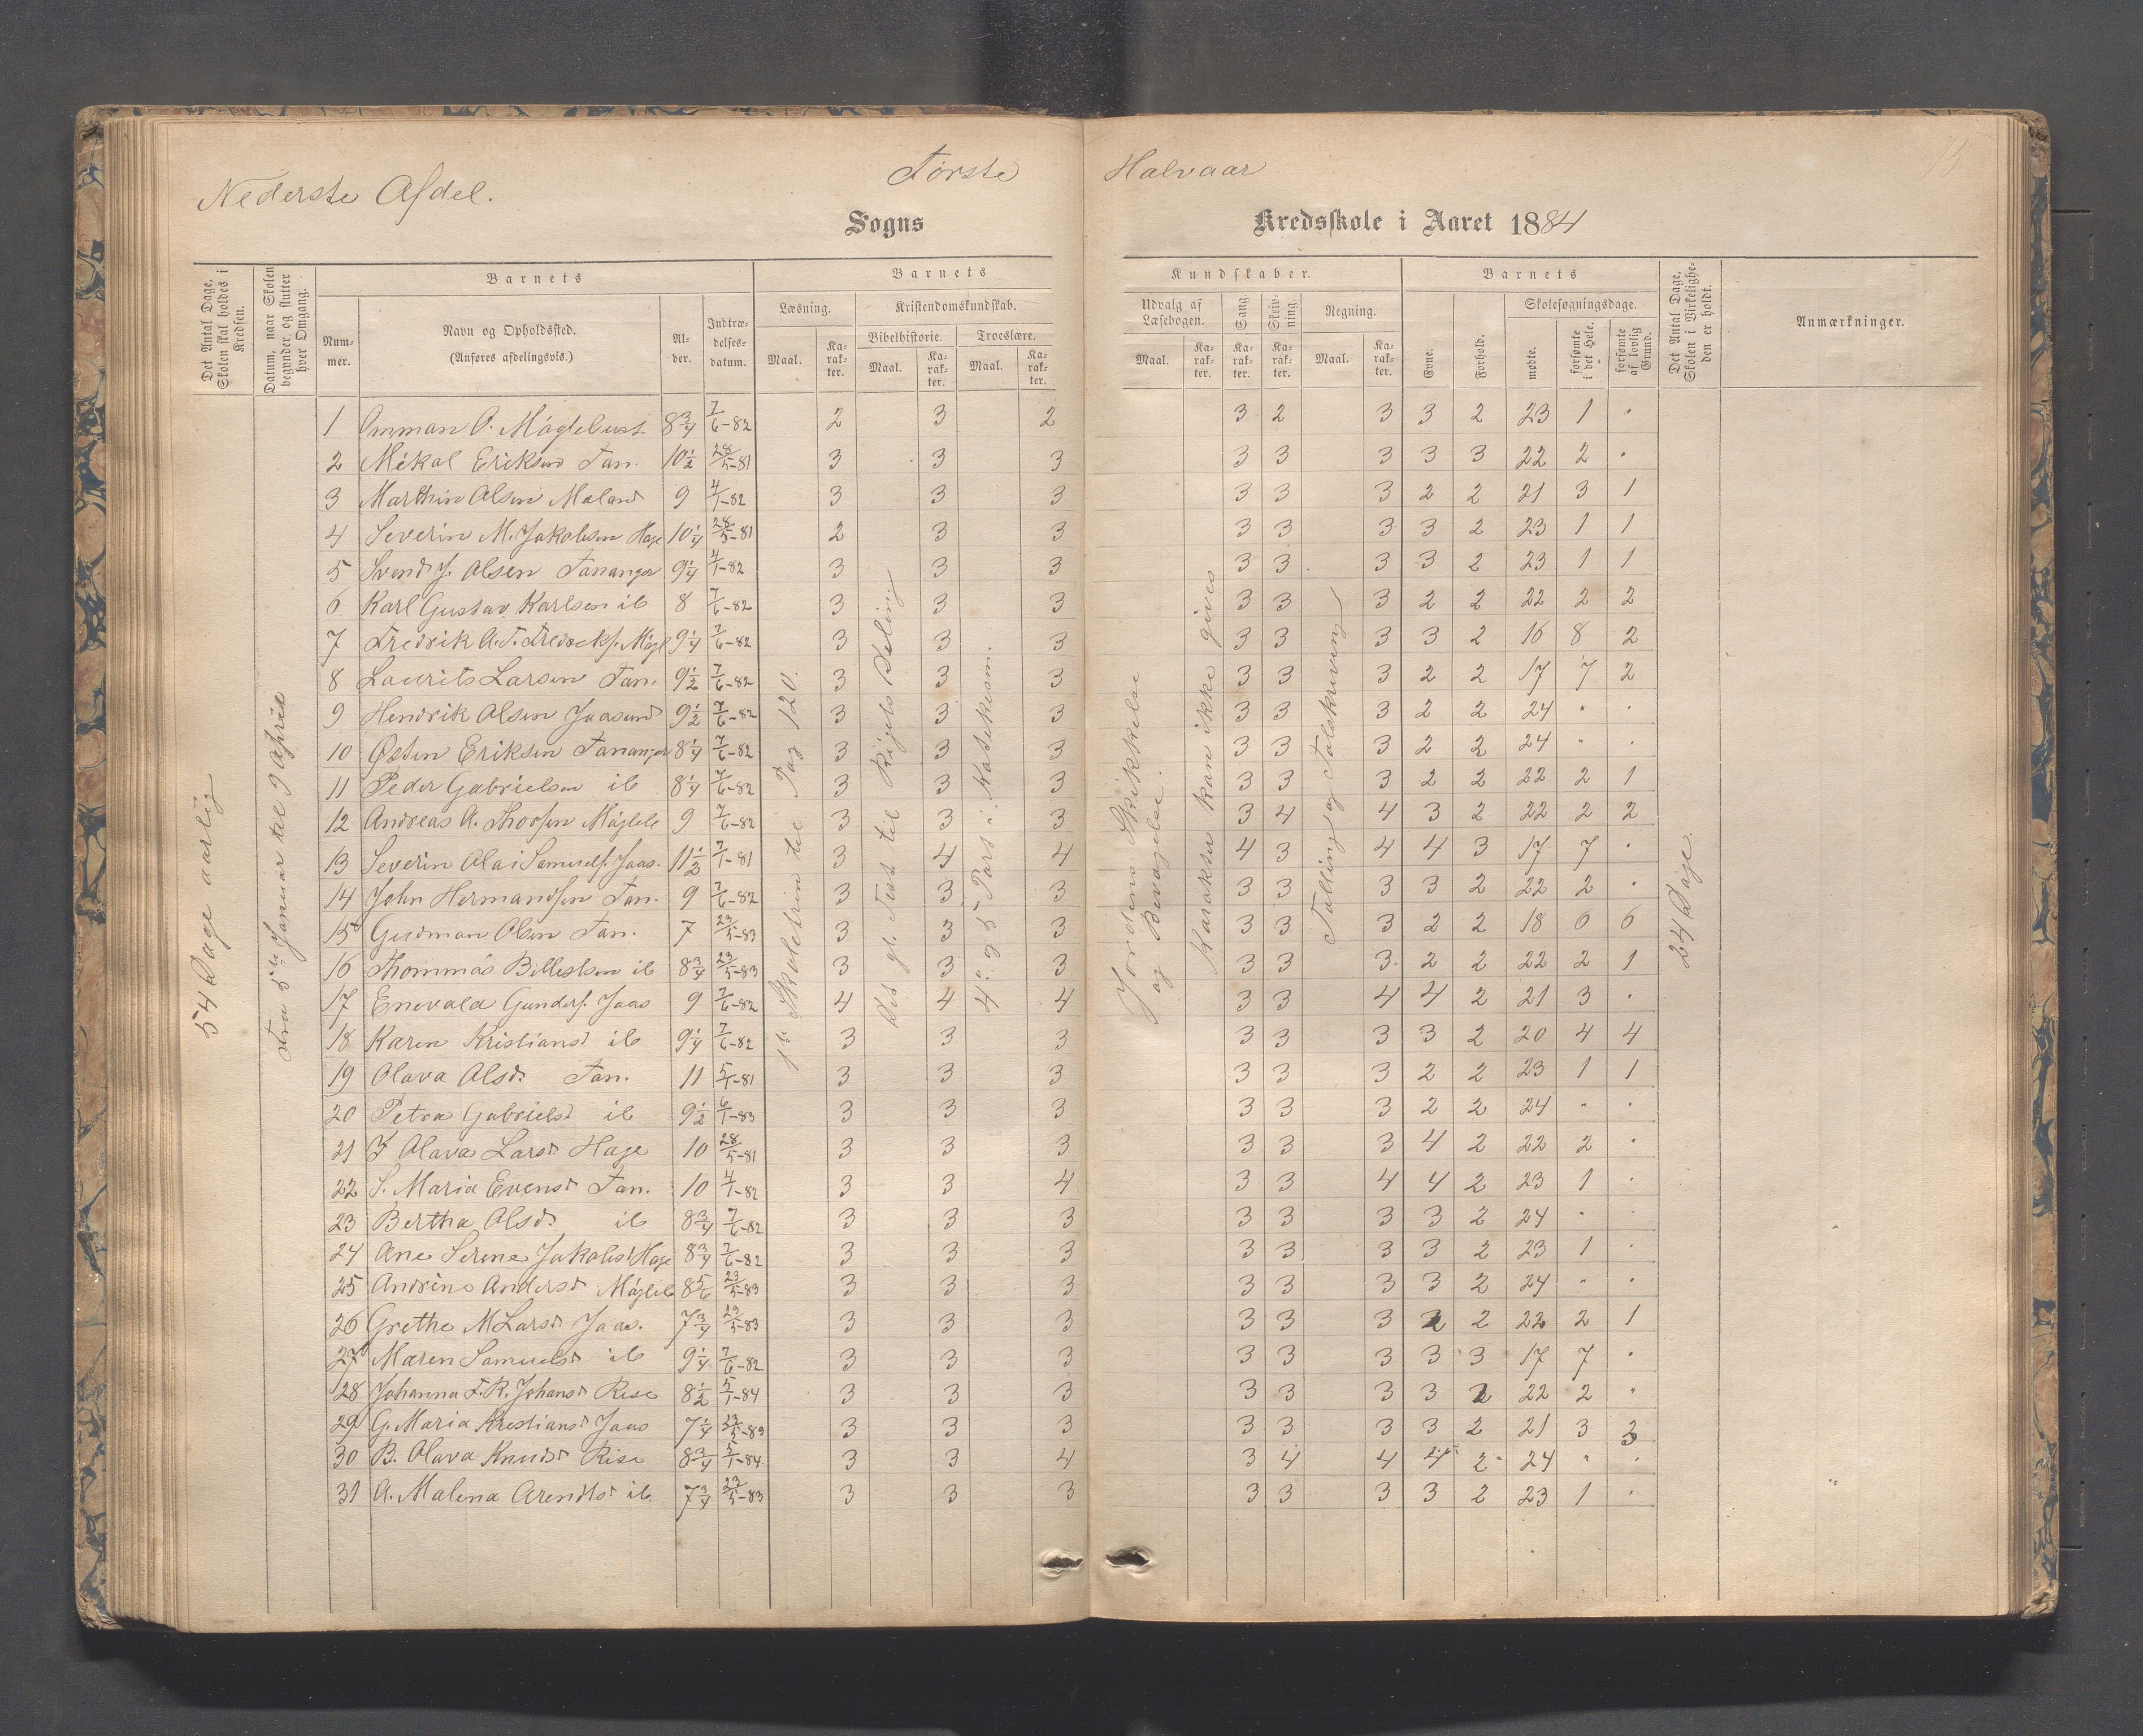 Nederste Afdel. Første Halvaar
Sogns Kredsskole i Aaret 1884
Det Antal Dage, Skolen skal holdes i Kredsen.
Datum, naar Skolen begynder og slutter hver Omgang.
Barnets
Num-mer.
Navn og Opholdssted.
(Anføres afdelingsvis.)
Al-der.
Indtræ-delses-datum.
Barnets Kundskaber.
Læsning.
Maal. Ka-rak-ter.
Kristendomskundskab.
Bibelhistorie. Troeslære.
Maal. Ka-rak-ter. Maal. Ka-rak-ter.
Udvalg af Læsebogen.
Maal. Ka-rak-ter.
Sang. Ka-rak-ter.
Skriv-ning. Ka-rak-ter.
Regning.
Maal. Ka-rak-ter.
Barnets
Evne. Forhold.
Skolesøgningsdage.
mødte. forsømte i det Hele. forsømte af lovlig Grund.
Det Antal Dage, Skolen i Virkelighe-den er holdt.
Anmærkninger.
54 Dage aarlig
Fra 5te Januar til 9 April
1ste Skoletrin til Pag 120.
Det gl. Test til Rigets Deling
4de og 5 Part i Katekism.
Jordens Skikkelse og Bevægelse.
Karakter kan ikke gives
Tælling og Talskrivning
24 Dage.
1 Omman O. Møglebust 8 3/4 7/6-82 2 3 2 3 2 3 3 2 23 1 .
2 Mikal Eriksen Tan. 10 1/2 28/5-81 3 3 3 3 3 3 3 3 22 2 .
3 Marthin Olsen Meland 9 4/1-82 3 3 3 3 3 3 2 2 21 3 1
4 Severin M. Jakobsen Hage 10 1/4 28/5-81 2 3 3 3 3 3 3 2 23 1 1
5 Svend J. Olsen Tananger 9 1/4 4/1-82 3 3 3 3 3 3 3 2 23 1 1
6 Karl Gustav Karlsen ib 8 7/6-82 3 3 3 3 3 3 2 2 22 2 2
7 Fredrik A. T. Fredreks. Mögl 9 1/4 7/6-82 3 3 3 3 3 3 3 2 16 8 2
8 Laurits Larsen Tan. 9 1/2 7/6-82 3 3 3 3 3 3 2 2 17 7 2
9 Hendrik Olsen Jaasund 9 1/2 7/6-82 3 3 3 3 3 3 2 2 24 " .
10 Østen Eriksen Tananger 8 1/4 7/6-82 3 3 3 3 3 3 2 2 24 " .
11 Peder Gabrielsen ib 8 1/4 7/6-82 3 3 3 3 3 3 2 2 22 2 1
12 Andreas A. Thorsen Mögleb 9 7/6-82 3 3 3 3 4 4 3 2 22 2 2
13 Severin Olai Samuels. Jaas. 11 1/2 7/1-81 3 4 4 4 3 4 4 3 17 7 .
14 John Hermandsen Tan. 9 7/6-82 3 3 3 3 3 3 3 2 22 2 .
15 Gudman Olsen Tan. 7 23/5-83 3 3 3 3 3 3 2 2 18 6 6
16 Thommas Billestsen ib 8 3/4 23/5-83 3 3 3 3 3 3 2 2 22 2 1
17 Enevald Gunders. Jaas 9 7/6-82 4 4 4 3 3 4 4 2 21 3 .
18 Karen Kristiansd ib 9 1/4 7/6-82 3 3 3 3 3 3 3 2 20 4 4
19 Olava Olsd. Tan. 11 5/1-81 3 3 3 3 3 3 2 2 23 1 1
20 Petra Gabrielsd ib 9 1/2 6/1-83 3 3 3 3 3 3 2 2 24 " .
21 J Olava Larsd Hage 10 28/5-81 3 3 3 3 3 3 4 2 22 2 .
22 S. Maria Evensd Tan. 10 4/1-82 3 3 4 3 3 4 4 2 23 1 .
23 Bertha Olsd. ib 8 3/4 7/6-82 3 3 3 3 3 3 3 2 24 " .
24 Ane Serene Jakobsd Hage 8 3/4 7/6-82 3 3 3 3 3 3 3 2 23 1 .
25 Andrine Andersd Mögleb 8 5/6 23/5-83 3 3 3 3 3 3 3 2 24 " .
26 Grethe M Larsd Jaas. 7 3/4 23/5-83 3 3 3 3 3 3 2 2 22 2 1
27 Maren Samuelsd ib 9 1/4 7/6-82 3 3 3 3 3 3 3 3 17 7 .
28 Johanna F. R. Johansd Rise 8 1/2 5/1-84 3 3 3 3 3 3 3 2 22 2 "
29 G. Maria Krestiansd Jaas 7 1/4 23/5-83 3 3 3 3 3 3 3 2 21 3 3
30 B. Olava Knudsd Rise 8 3/4 5/1-84 3 3 4 3 4 4 4 2 24 " .
31 A. Malena Arendtsd ib. 7 3/4 23/5-83 3 3 3 3 3 3 3 2 23 1 .